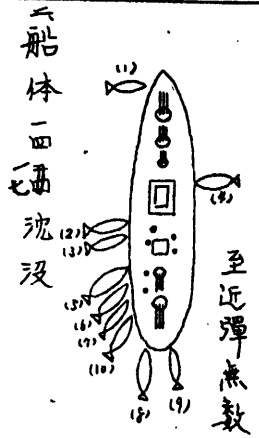 船体一四一七沈没
(1)
(4)
(2)
(3)
(5)
(6)
(7)
(10)
(8)
(9)
至近彈無数